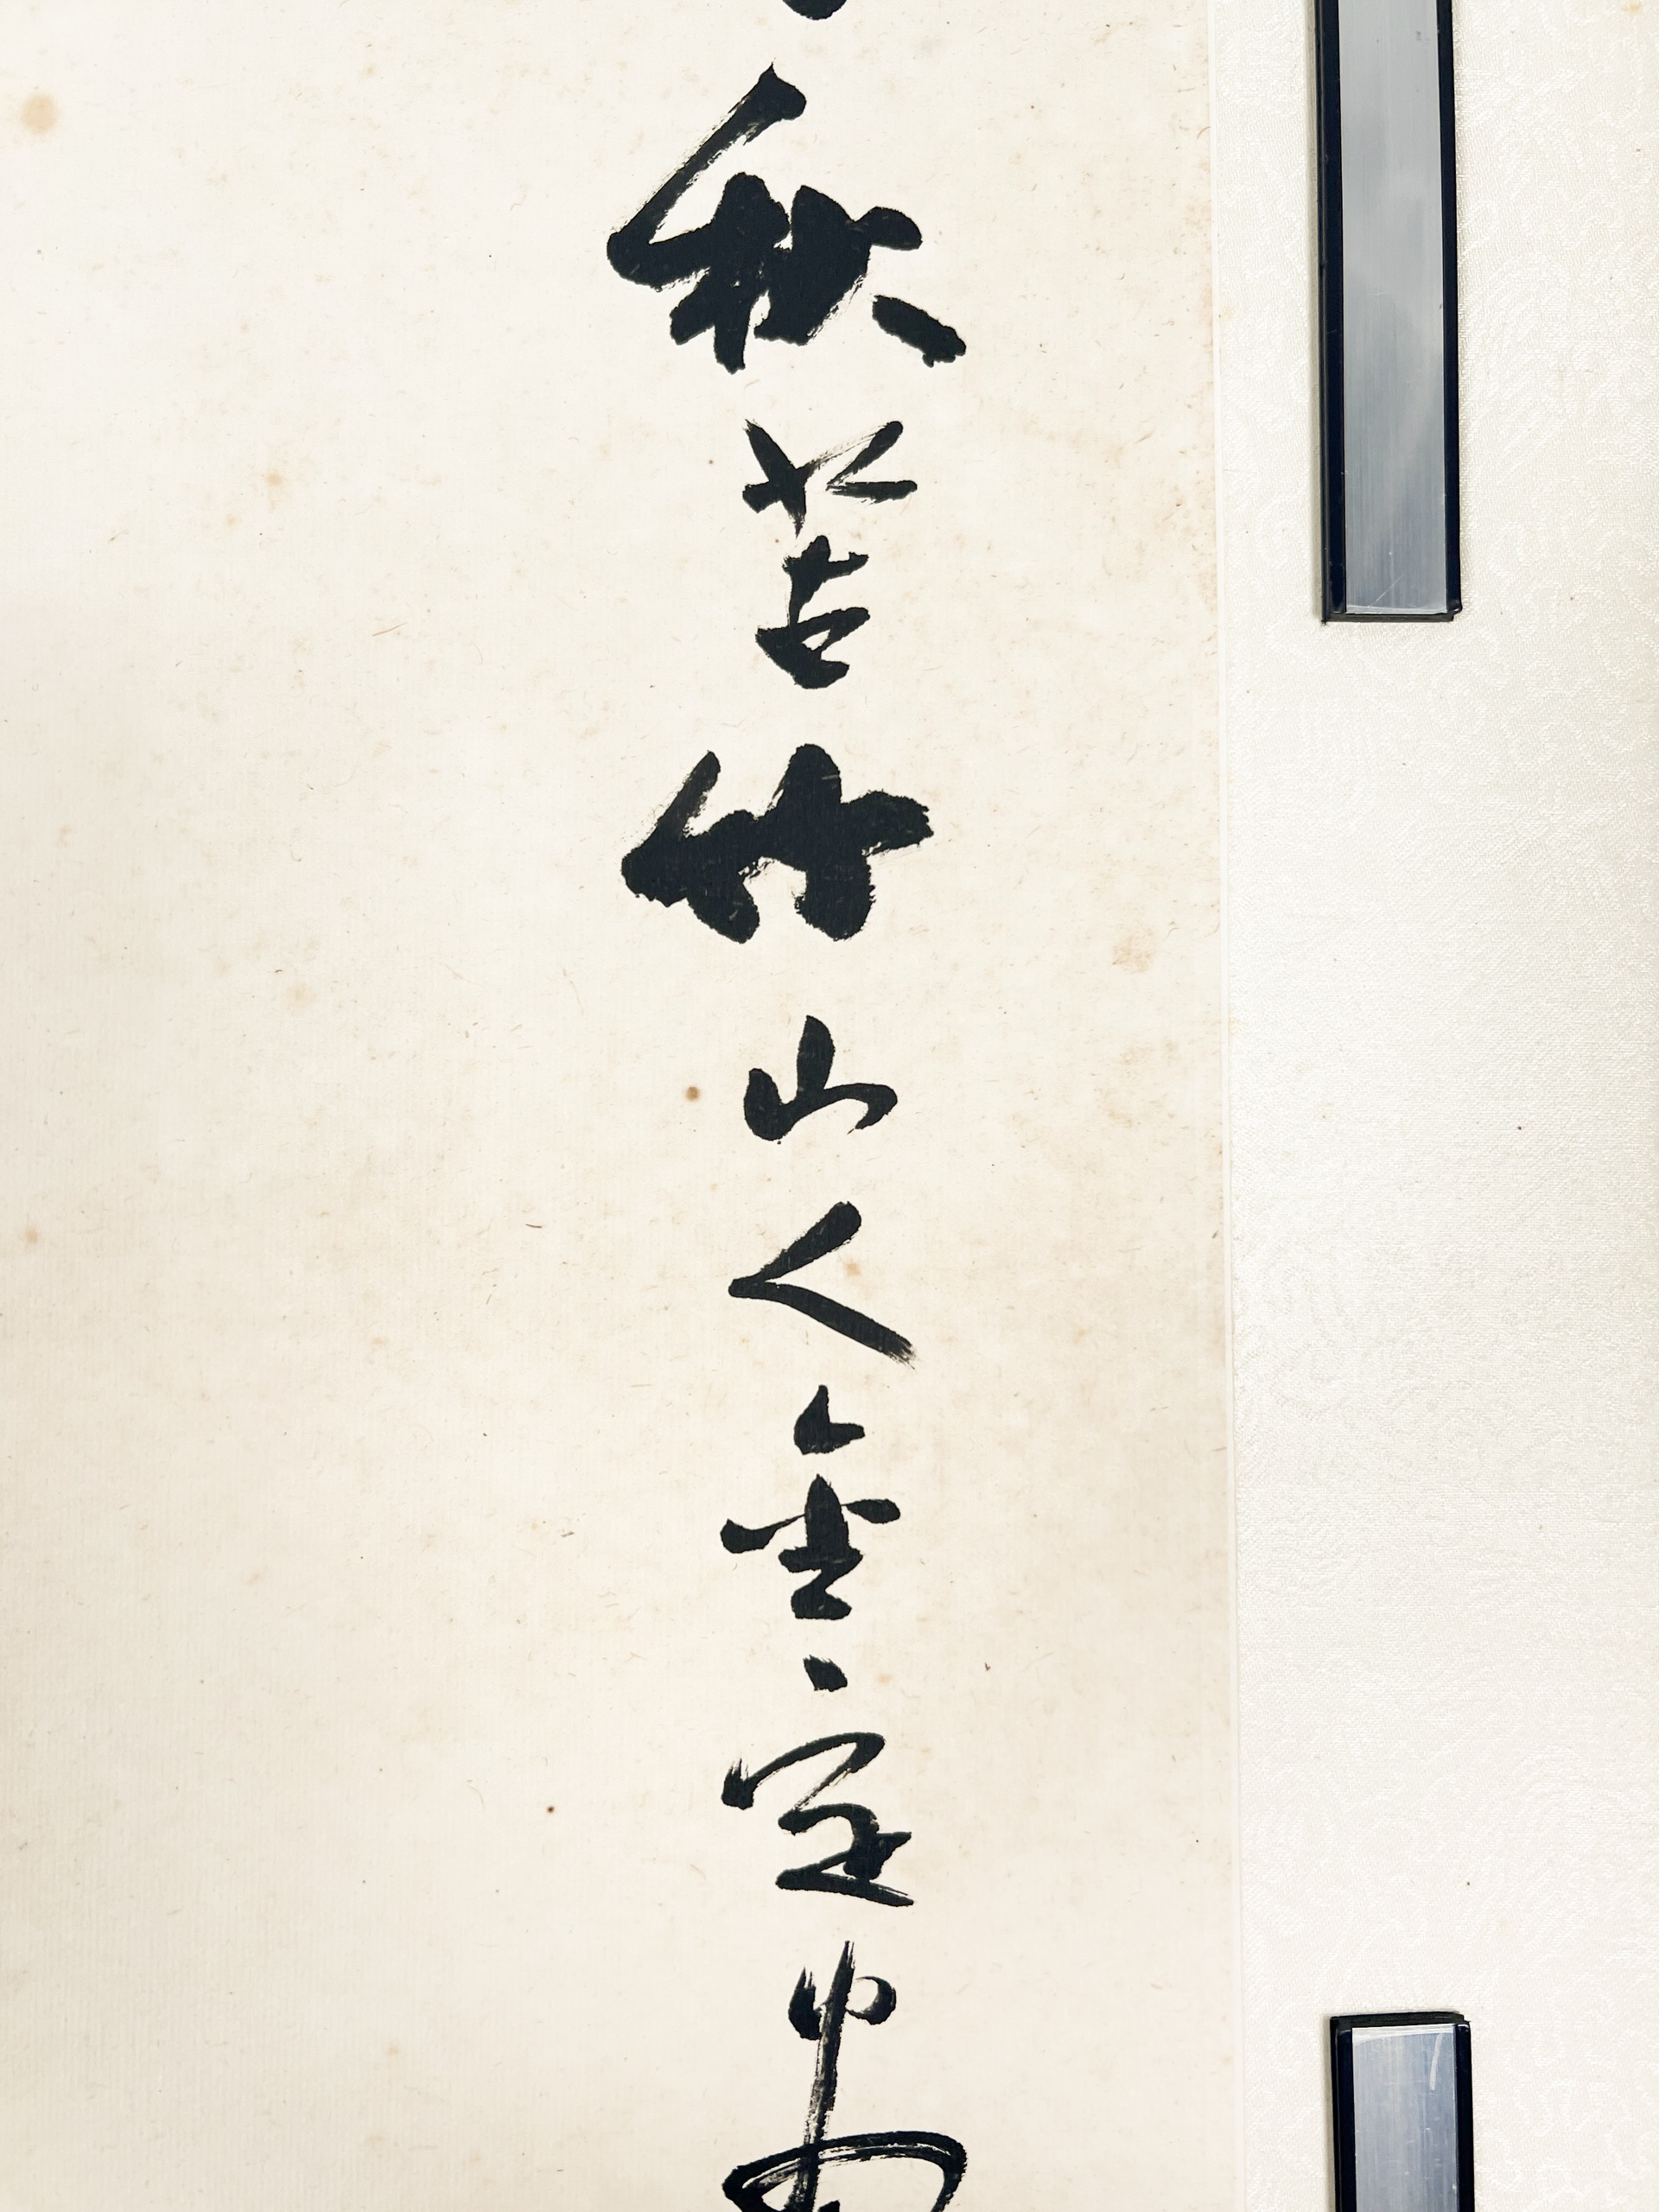 秋苦竹山人金定